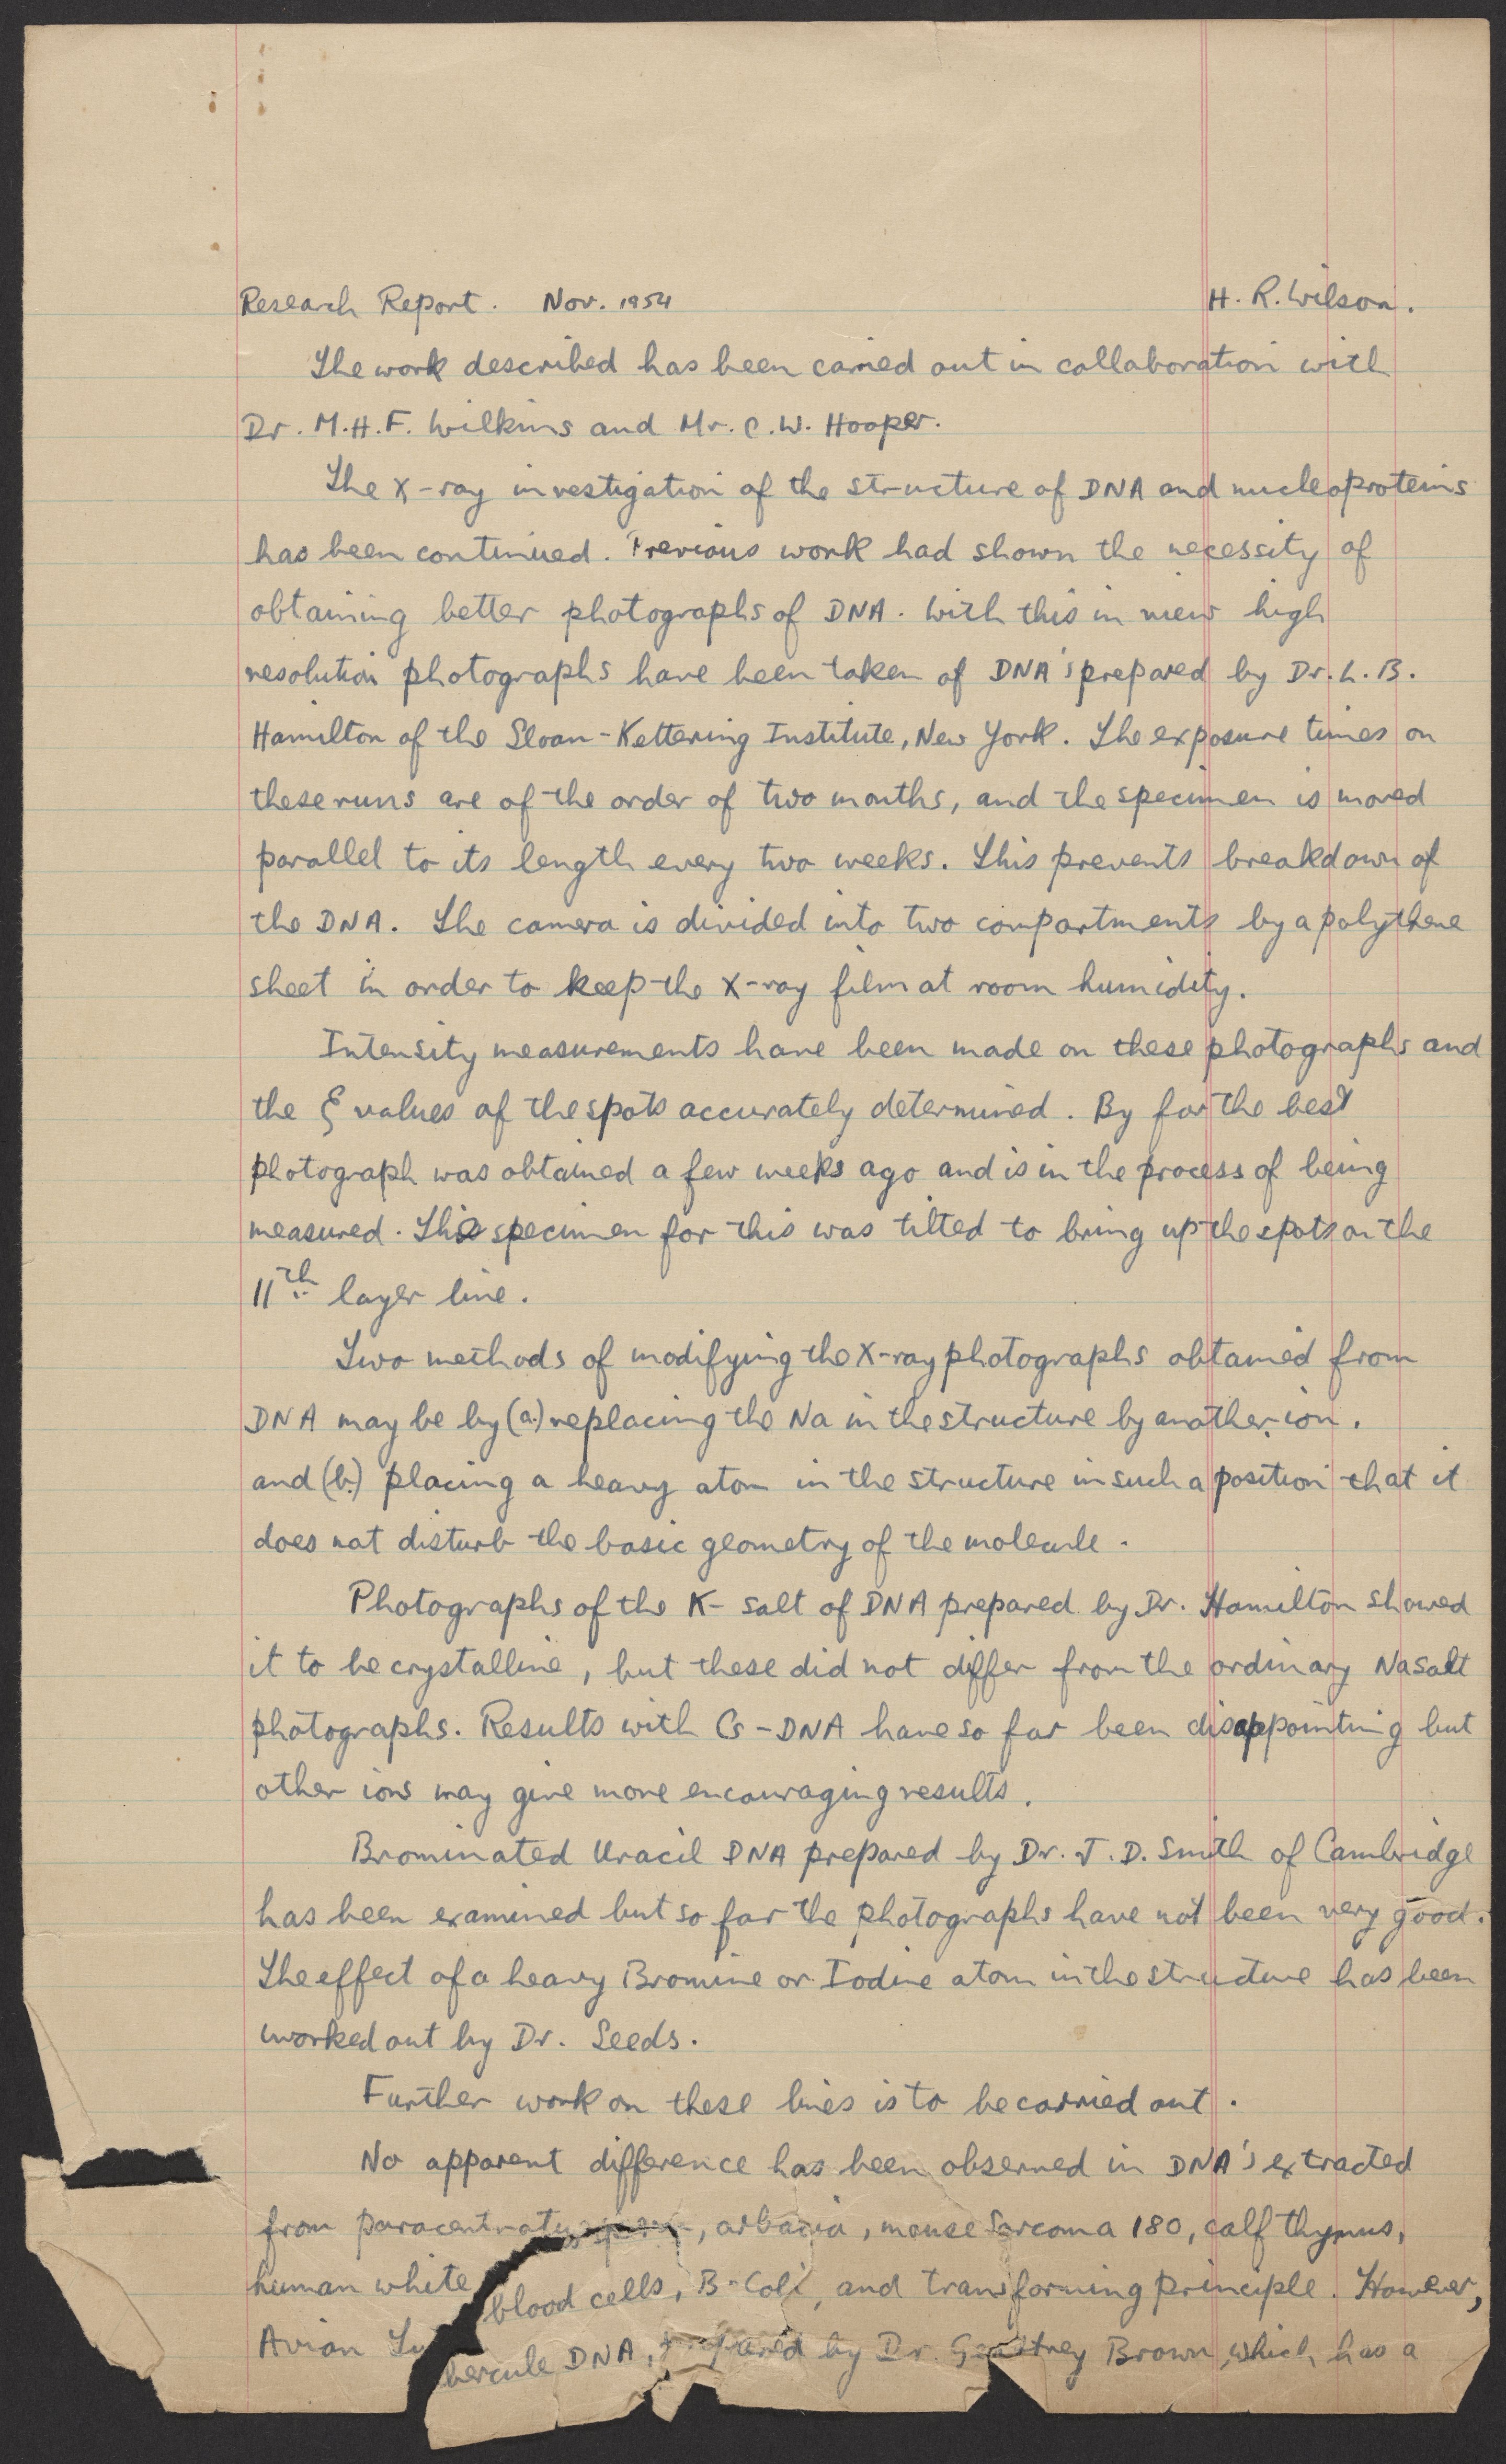 Research Report. Nov. 1954 H. R. Wilson.
The work described has been carried out in collaboration with
Dr. M.H.F. Wilkins and Mr. C.W. Hooper.
The X-ray investigation of the structure of DNA and nucleoproteins
has been continued. Previous work had shown the necessity of
obtaining better photographs of DNA. With this in view high
resolution photographs have been taken of DNA's prepared by Dr. L. B.
Hamilton of the Sloan-Kettering Institute, New York. The exposure times on
these runs are of the order of two months, and the specimen is moved
parallel to its length every two weeks. This prevents breakdown of
the DNA. The camera is divided into two compartments by a polythene
sheet in order to keep the X-ray film at room humidity.
Intensity measurements have been made on these photographs and
the ξ values of the spots accurately determined. By far the best
photograph was obtained a few weeks ago and is in the process of being
measured. The specimen for this was tilted to bring up the spots on the
11th layer line.
Two methods of modifying the X-ray photographs obtained from
DNA may be by (a.) replacing the Na in the structure by another ion.
and (b.) placing a heavy atom in the structure in such a position that it
does not disturb the basic geometry of the molecule.
Photographs of the K- salt of DNA prepared by Dr. Hamilton showed
it to be crystalline, but these did not differ from the ordinary Na salt
photographs. Results with Cs-DNA have so far been disappointing but
other ions may give more encouraging results.
Brominated Uracil DNA prepared by Dr. J. D. Smith of Cambridge
has been examined but so far the photographs have not been very good.
The effect of a heavy Bromine or Iodine atom in the structure has been
worked out by Dr. Seeds.
Further work on these lines is to be carried out.
No apparent difference has been observed in DNA's extracted
from paracentrotus sperm, arbacia, mouse Sarcoma 180, calf thymus,
human white blood cells, B-Coli, and transforming principle. However,
Avian Tubercule DNA, prepared by Dr. Brown which has a